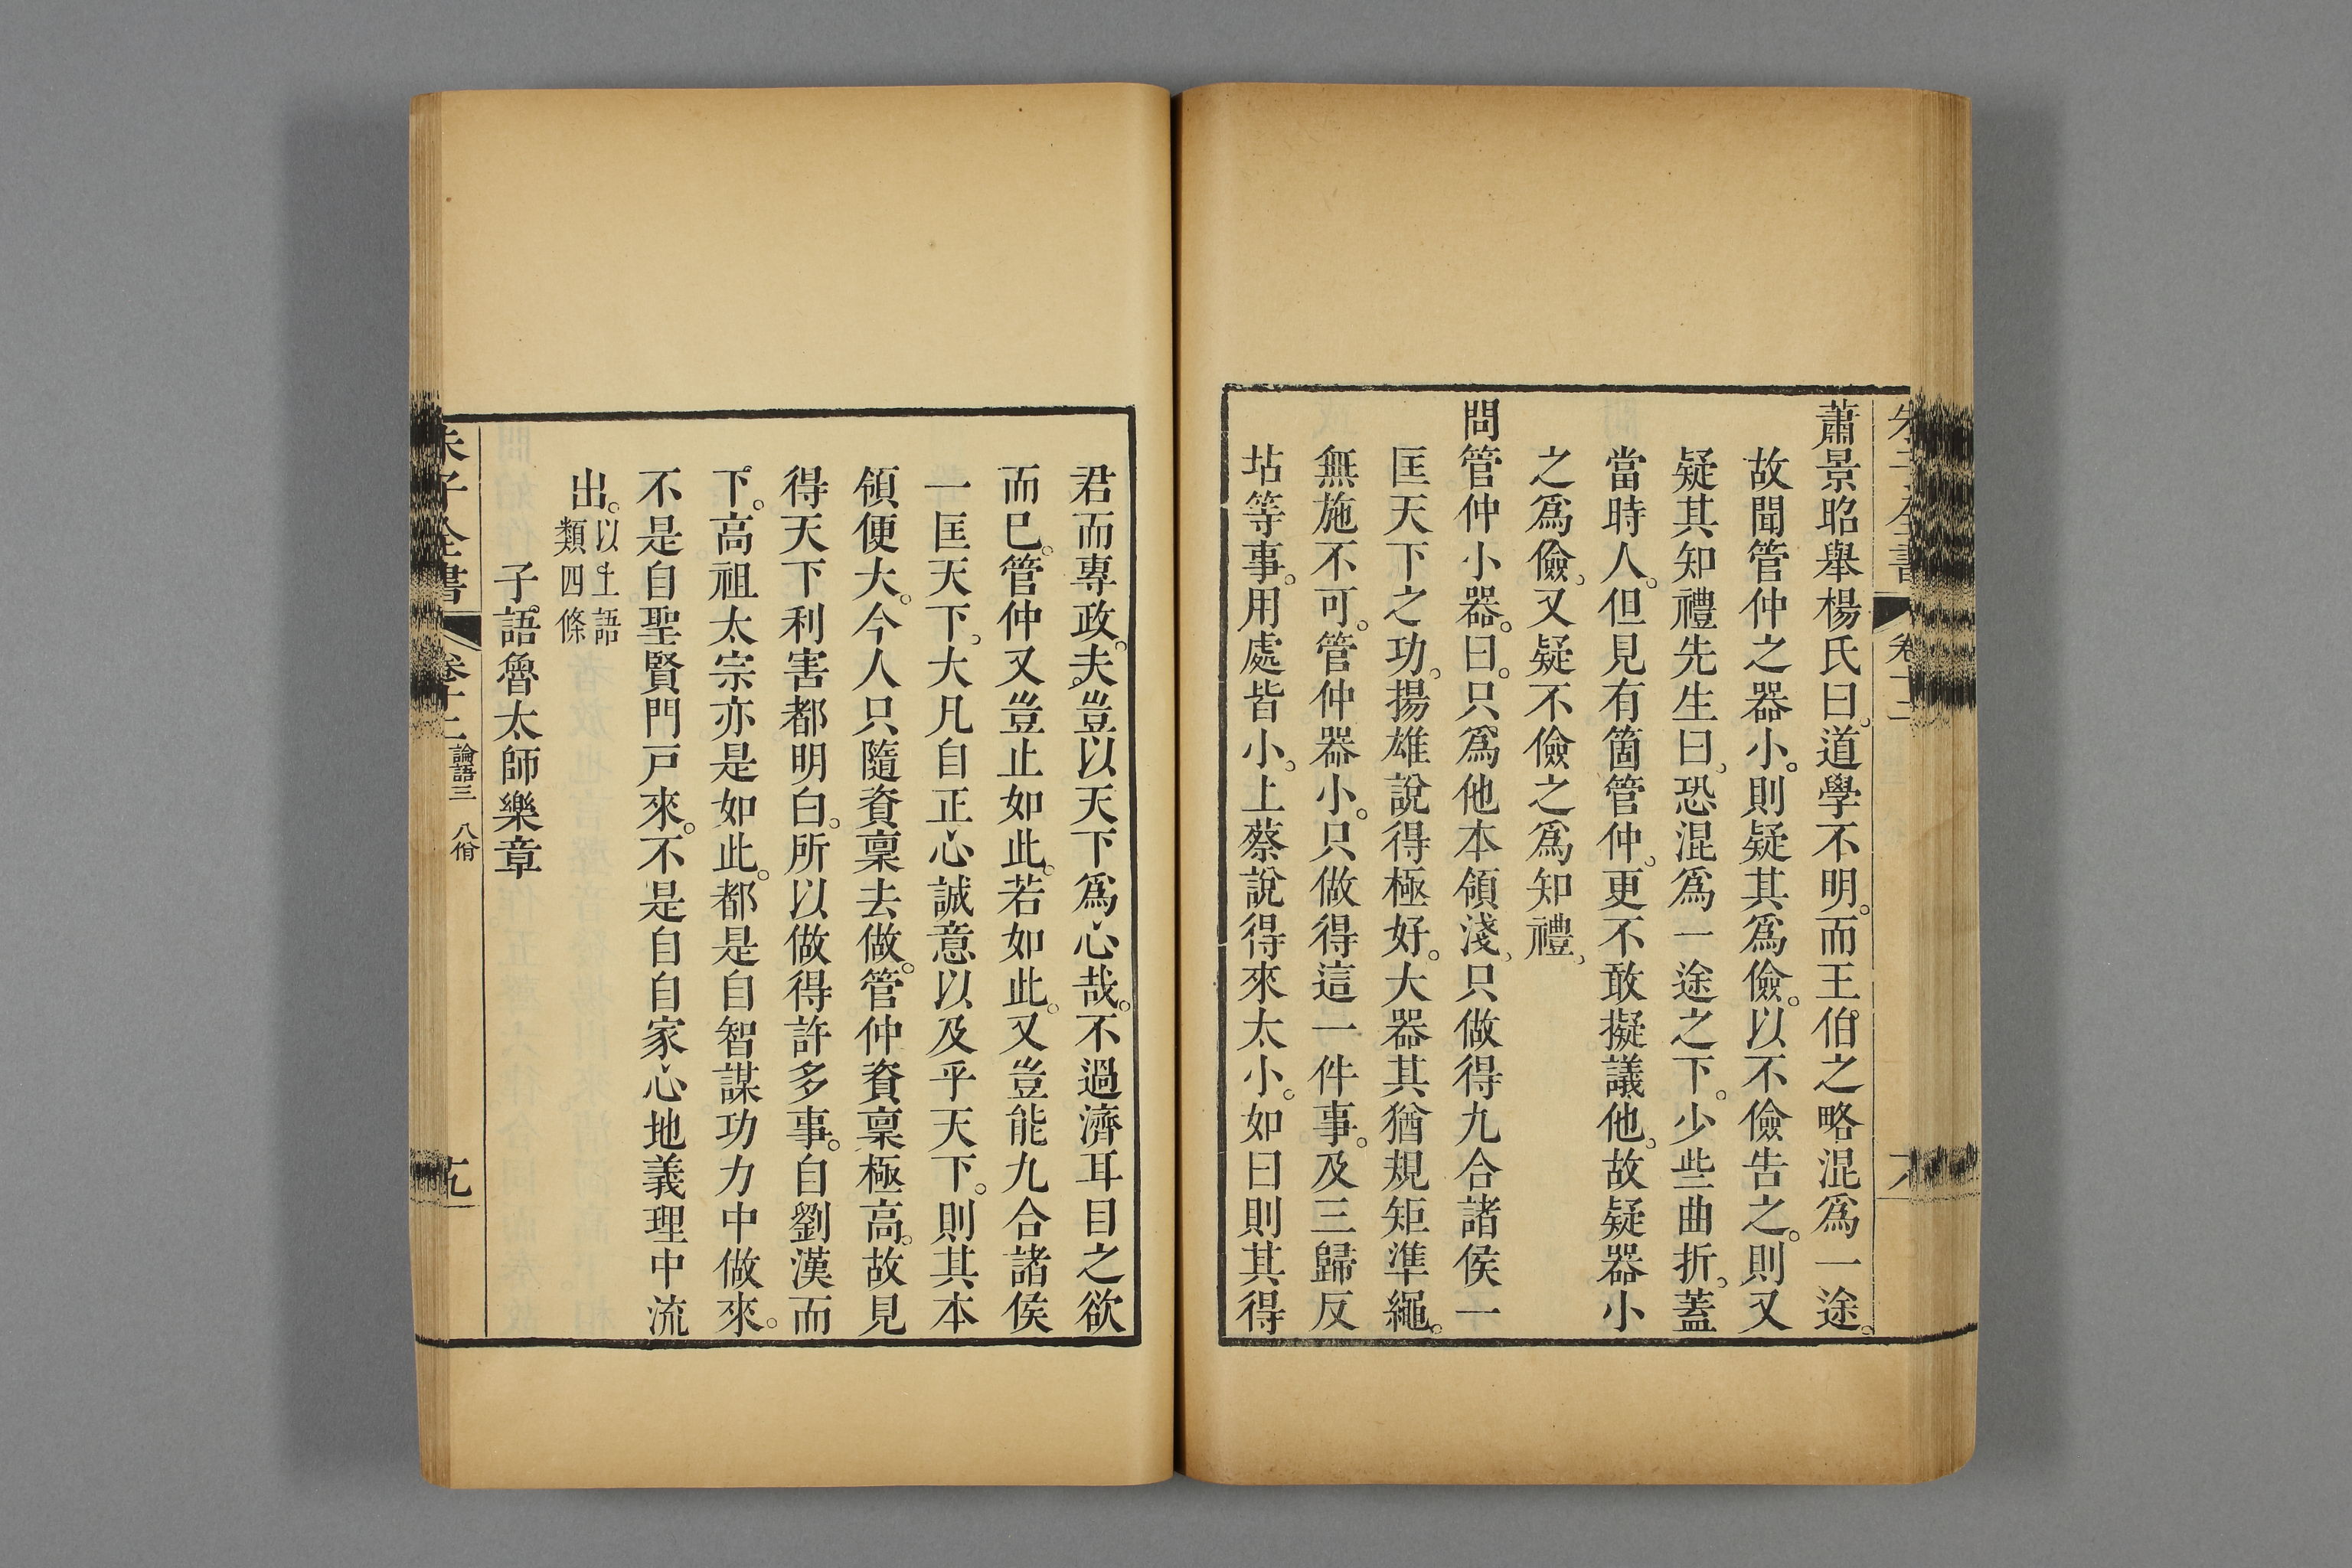 蕭景昭舉楊氏曰。道學不明。而王伯之略混爲一途。
故聞管仲之器小。則疑其爲儉。以不儉告之。則又
疑其知禮先生曰、恐混爲一途之下。少些曲折。蓋
當時人。但見有箇管仲。更不敢擬議他。故疑器小
之爲儉、又疑不儉之爲知禮、
問管仲小器。曰。只爲他本領淺、只做得九合諸侯一
匡天下之功。揚雄說得極好。大器其猶規矩準繩。
無施不可。管仲器小。只做得這一件事。及三歸反
坫等事。用處皆小。上蔡說得來太小。如曰則其得
君而專政。夫豈以天下爲心哉。不過濟耳目之欲
而已。管仲又豈止如此。若如此。又豈能九合諸侯
一匡天下。大凡自正心誠意以及乎天下。則其本
領便大。今人只隨資稟去做。管仲資稟極高。故見
得天下利害都明白。所以做得許多事。自劉漢而
下。高祖太宗亦是如此。都是自智謀功力中做來。
不是自聖賢門戸來。不是自自家心地義理中流
出。以上語
類四條
子語魯太師樂章
朱子全書 卷十二 論語三 八佾